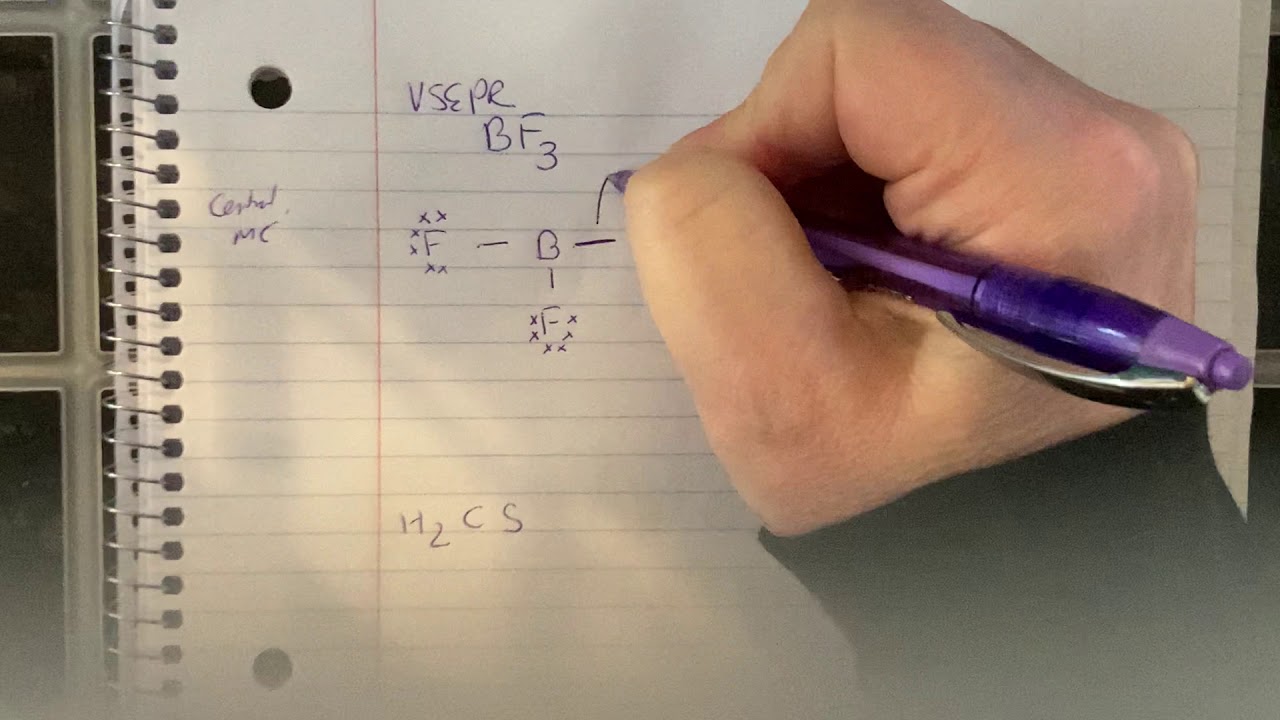 VSEPR
BF3
Central
MC
F — B —
F
H2CS